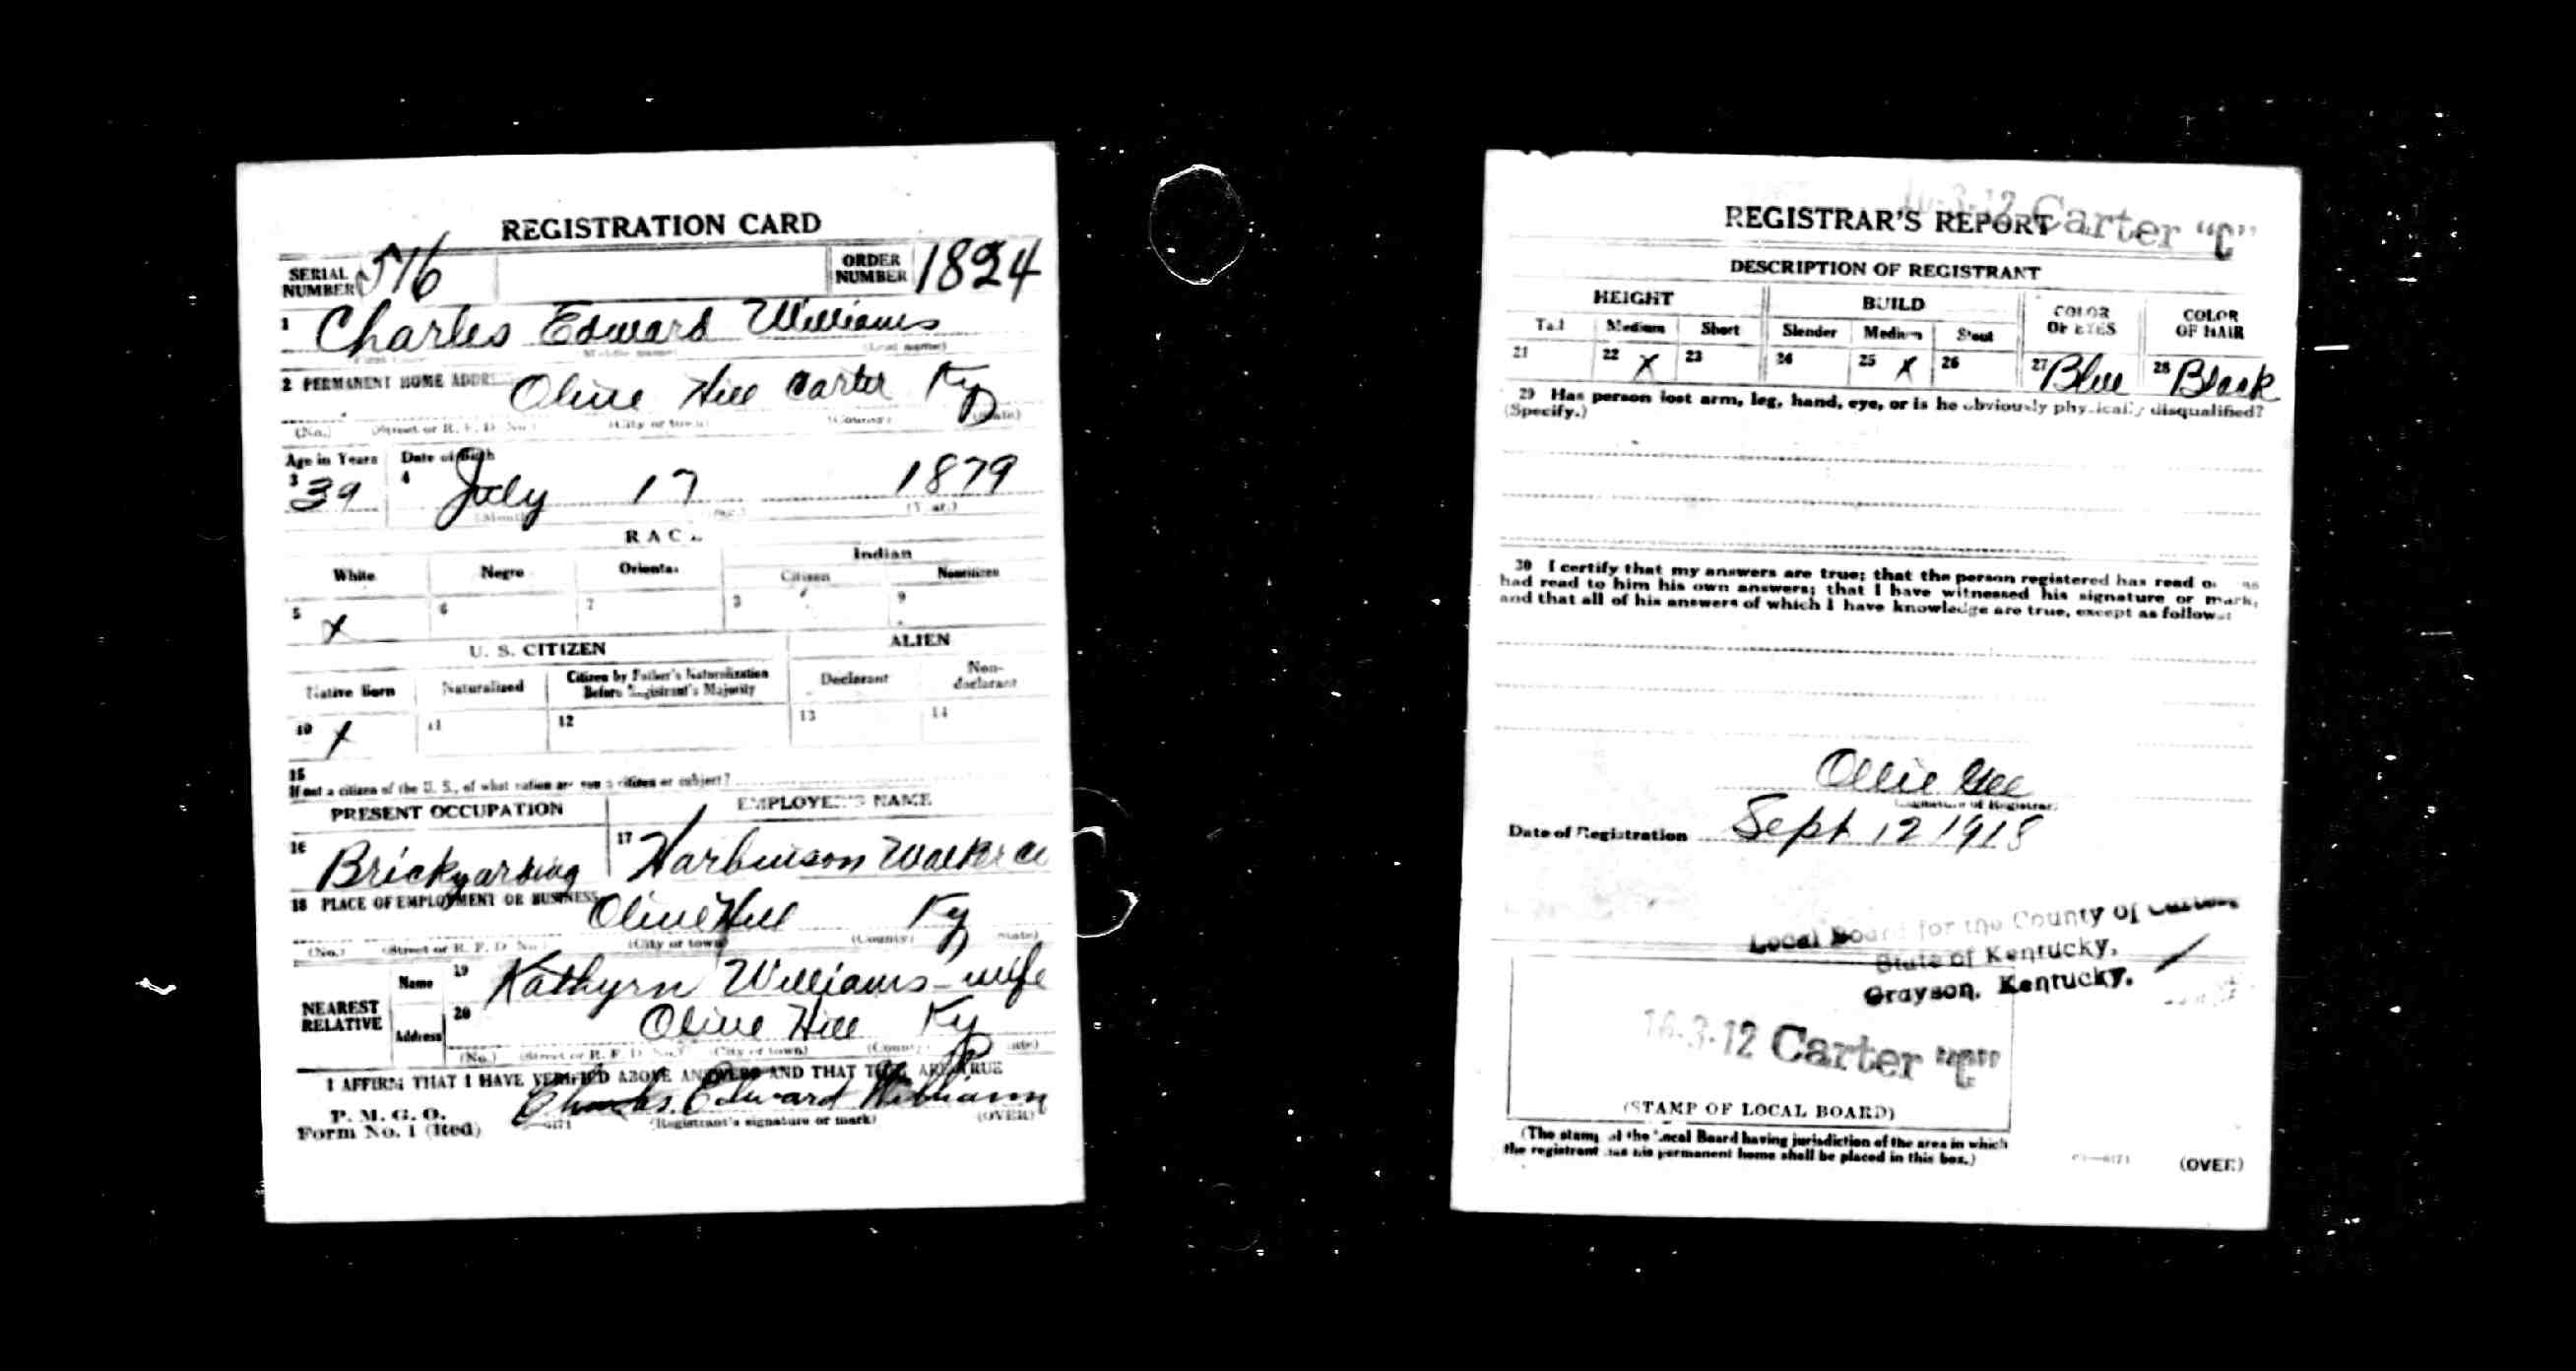 REGISTRATION CARD
SERIAL NUMBER 516 ORDER NUMBER 1824
1 Charles Edward Williams
(Middle name) (Last name)
2 PERMANENT HOME ADDR Olive Hill Carter Ky
(No.) (Street or R. F. D. No.) (City or town) (County) (State)
Age in Years Date of Birth
3 39 4 July 17 1879
(Month) (Day.) (Year.)
RACE
Indian
White Negro Oriental Citizen Noncitizen
5 X 6 7 8 9
U. S. CITIZEN ALIEN
Native Born Naturalized Citizen by Father's Naturalization Before Registrant's Majority Declarant Non-declarant
10 X 11 12 13 14
15
If not a citizen of the U. S., of what nation are you a citizen or subject?
PRESENT OCCUPATION EMPLOYER'S NAME
16 Brickyarding 17 Harbinson Walker Co
18 PLACE OF EMPLOYMENT OR BUSINESS Olive Hill Ky
(No.) (Street or R. F. D. No.) (City or town) (County) (State)
NEAREST RELATIVE
Name 19 Kathyrn Williams - wife
Address 20 Olive Hill Ky
(No.) (Street or R. F. D. No.) (City or town) (County) (State)
I AFFIRM THAT I HAVE VERIFIED ABOVE ANSWERS AND THAT THEY ARE TRUE
P. M. G. O.
Form No. 1 (Red) Charles Edward Williams
(Registrant's signature or mark) (OVER)
16-3-12 Carter "C"
REGISTRAR'S REPORT
DESCRIPTION OF REGISTRANT
HEIGHT BUILD COLOR OF EYES COLOR OF HAIR
Tall Medium Short Slender Medium Stout
21 22 X 23 24 25 X 26 27 Blue 28 Black
29 Has person lost arm, leg, hand, eye, or is he obviously physically disqualified?
(Specify.)
30 I certify that my answers are true; that the person registered has read or has
had read to him his own answers; that I have witnessed his signature or mark,
and that all of his answers of which I have knowledge are true, except as follows:
Ollie Gee
(Signature of Registrar)
Date of Registration Sept 12 1918
Local Board for the County of Carter,
State of Kentucky,
Grayson, Kentucky.
16-3-12 Carter "C"
(STAMP OF LOCAL BOARD)
(The stamp of the Local Board having jurisdiction of the area in which
the registrant has his permanent home shall be placed in this box.)
(OVER)